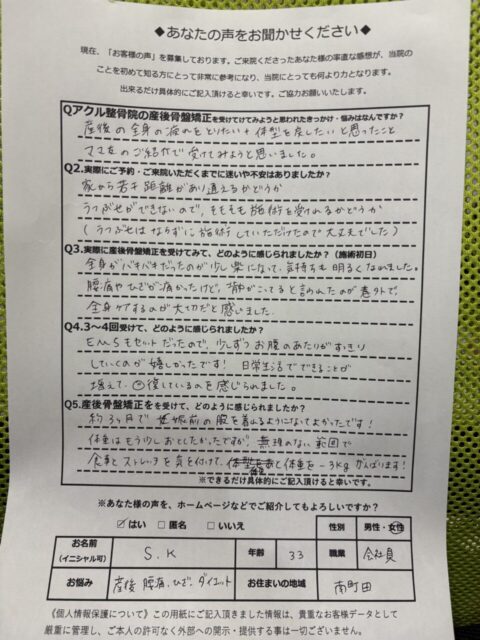 ◆あなたの声をお聞かせください◆
現在、「お客様の声」を募集しております。ご来院くださったあなた様の率直な感想が、当院の
ことを初めて知る方にとって非常に参考になり、当院にとっても何より力となります。
出来るだけ具体的にご記入頂けると幸いです。ご協力お願いいたします。
Qアクル整骨院の産後骨盤矯正を受けてけてみようと思われたきっかけ・悩みはなんですか?
産後の全身の疲れをとりたい+体型を戻したいと思ったこと
ママ友のご紹介で受けてみようと思いました。
Q2.実際にご予約・ご来院いただくまでに迷いや不安はありましたか?
家から若干距離があり通えるかどうか
うつぶせができないので、そもそも施術を受けれるかどうか
(うつぶせはならずに施術していただけたので大丈夫でした)
Q3.実際に産後骨盤矯正を受けてみて、どのように感じられましたか?(施術初日)
全身がバキバキだったのが少し楽になって、気持ちも明るくなれました。
腰痛やひざが痛かったけど、背中がこってると言われたのが意外で、
全身ケアするのが大切だと感じました
Q4.3〜4回受けて、どのように感じられましたか?
EMSもセットだったので、少しずつお腹のあたりがすっきり
していくのが嬉しかったです! 日常生活でできることが
増えて、回復しているのを感じられました。
Q5.産後骨盤矯正をを受けて、どのように感じられましたか?
約3ヶ月で妊娠前の服を着れるようになってよかったです!
体重はもう少しおとしたかったですが、無理のない範囲で
食事とストレッチを気を付けて、あと体重を-3kgがんばります!
※できるだけ具体的にご記入頂けると幸いです。
※あなた様の声を、ホームページなどでご紹介してもよろしいですか?
☑はい □匿名 □いいえ
性別 男性・女性
お名前
(イニシャル可) S.K 年齢 33 職業 会社員
お悩み 産後 腰痛、ひざ、ダイエット お住まいの地域 南町田
《個人情報保護について》この用紙にご記入頂きました情報は、貴重なお客様データとして
厳重に管理し、ご本人の許可なく外部への開示・提供する事は一切ございません。